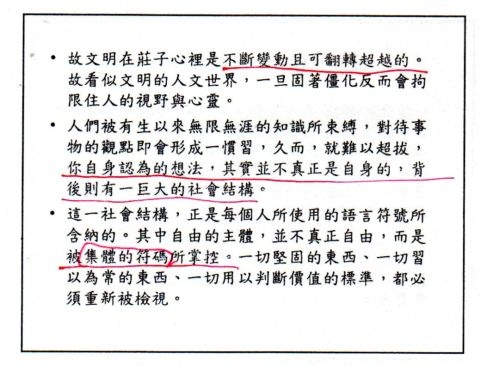 • 故文明在莊子心裡是不斷變動且可翻轉超越的。
故看似文明的人文世界，一旦固著僵化反而會拘
限住人的視野與心靈。
• 人們被有生以來無限無涯的知識所束縛，對待事
物的觀點即會形成一慣習，久而，就難以超拔，
你自身認為的想法，其實並不真正是自身的，背
後則有一巨大的社會結構。
• 這一社會結構，正是每個人所使用的語言符號所
含納的。其中自由的主體，並不真正自由，而是
被集體的符碼所掌控。一切堅固的東西、一切習
以為常的東西、一切用以判斷價值的標準，都必
須重新被檢視。